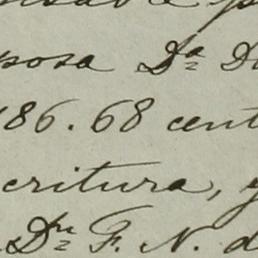 posa Da
186.68 cent
critura, y
Dn F. N. d